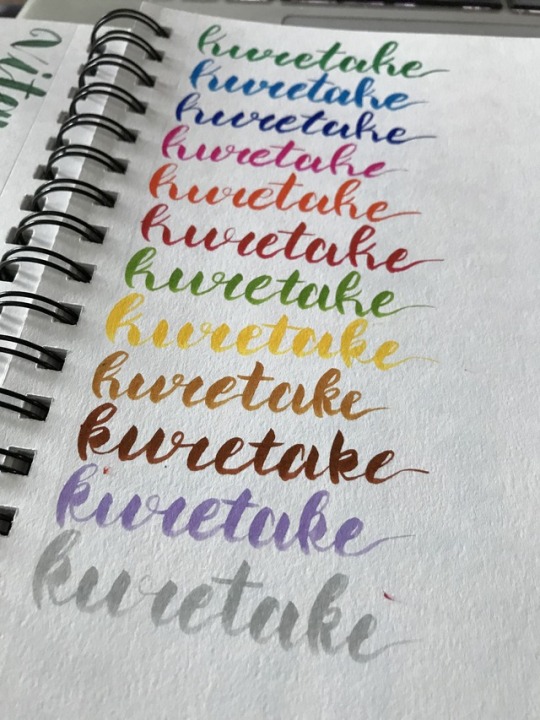 kuretake
kuretake
kuretake
kuretake
kuretake
kuretake
kuretake
kuretake
kuretake
kuretake
kuretake
kuretake